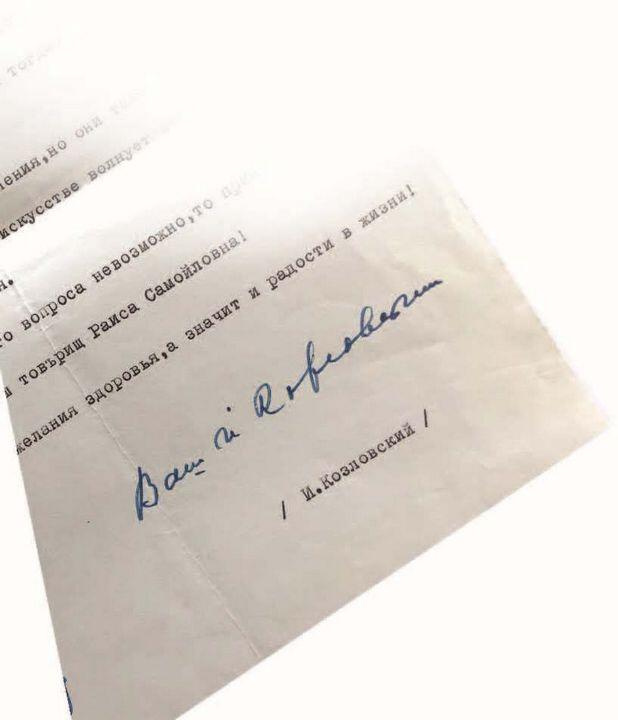 тогда
ения,но они
искусстве волнует
н.
о вопроса невозможно,то
товърищ Раиса Самойловна!
желания здоровья,а значит и радости в жизни!
Ваш И Козловский
/ И.Козловский /